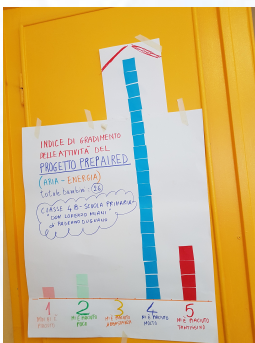 INDICE DI GRADIMENTO
DELLE ATTIVITA' DEL
PROGETTO PREPAIRED
(ARIA - ENERGIA)
totale bambini: 26
CLASSE 4B - SCUOLA PRIMARIA
"DON LORENZO MILANI"
di PADERNO DUGNANO
1 2 3 4 5
PIACIUTO M'È PIACIUTO M'È PIACIUTO M'È PIACIUTO M'È PIACIUTO
POCO MOLTO TANTISSIMO